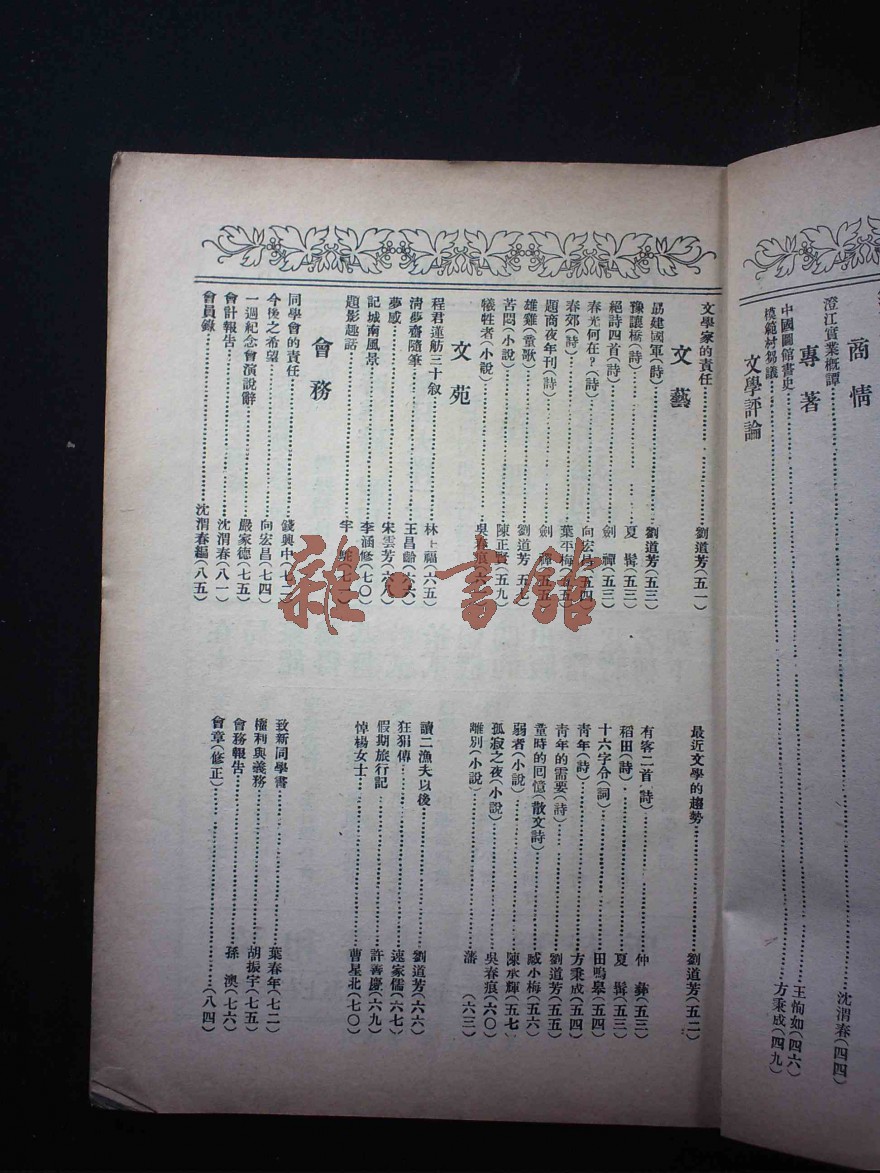 商情
澄江實業概譚……沈渭春(四四)
專著
中國圖館書史……王恂如(四六)
模範村芻議……方秉成(四九)
文學評論
文學家的責任……劉道芳(五一)
最近文學的趨勢……劉道芳(五二)
文藝
勗建國軍(詩)……劉道芳(五三)
有客二首(詩)……仲彝(五三)
豫讓橋(詩)……夏聲(五三)
稻田(詩)……夏聲(五三)
絕詩四首(詩)……劍禪(五三)
十六字令(詞)……田鳴皋(五四)
春光何在?(詩)……向宏昌(五四)
青年(詩)……方秉成(五四)
春郊(詩)……葉平梅(五五)
青年的需要(詩)……劉道芳(五五)
題商夜年刊(詩)……劍禪(五五)
童時的回憶(散文詩)……戚小梅(五六)
雄雞(童歌)……劉道芳
弱者(小說)……陳承輝(五七)
苦悶(小說)……陳正賢(五九)
孤寂之夜(小說)……吳春痕(六〇)
犧牲者(小說)……吳春痕
離別(小說)……藩(六三)
文苑
程君蓮舫三十叙……林上福(六五)
讀二漁夫以後……劉道芳(六六)
清夢齋隨筆……王昌齡(六六)
狂狷傳……速家儒(六七)
夢感……宋雲芳(六八)
假期旅行記……許善慶(六九)
記城南風景……李涵修(七〇)
悼楊女士……曹星北(七〇)
題影趣話……半(七一)
會務
同學會的責任……錢興中(七二)
致新同學書……葉春年(七二)
今後之希望……向宏昌(七四)
權利與義務……胡振宇(七五)
一週紀念會演說辭……嚴家德(七五)
會務報告……孫澳(七六)
會計報告……沈渭春(八一)
會章(修正)……(八四)
會員錄……沈渭春編(八五)
雜·書館